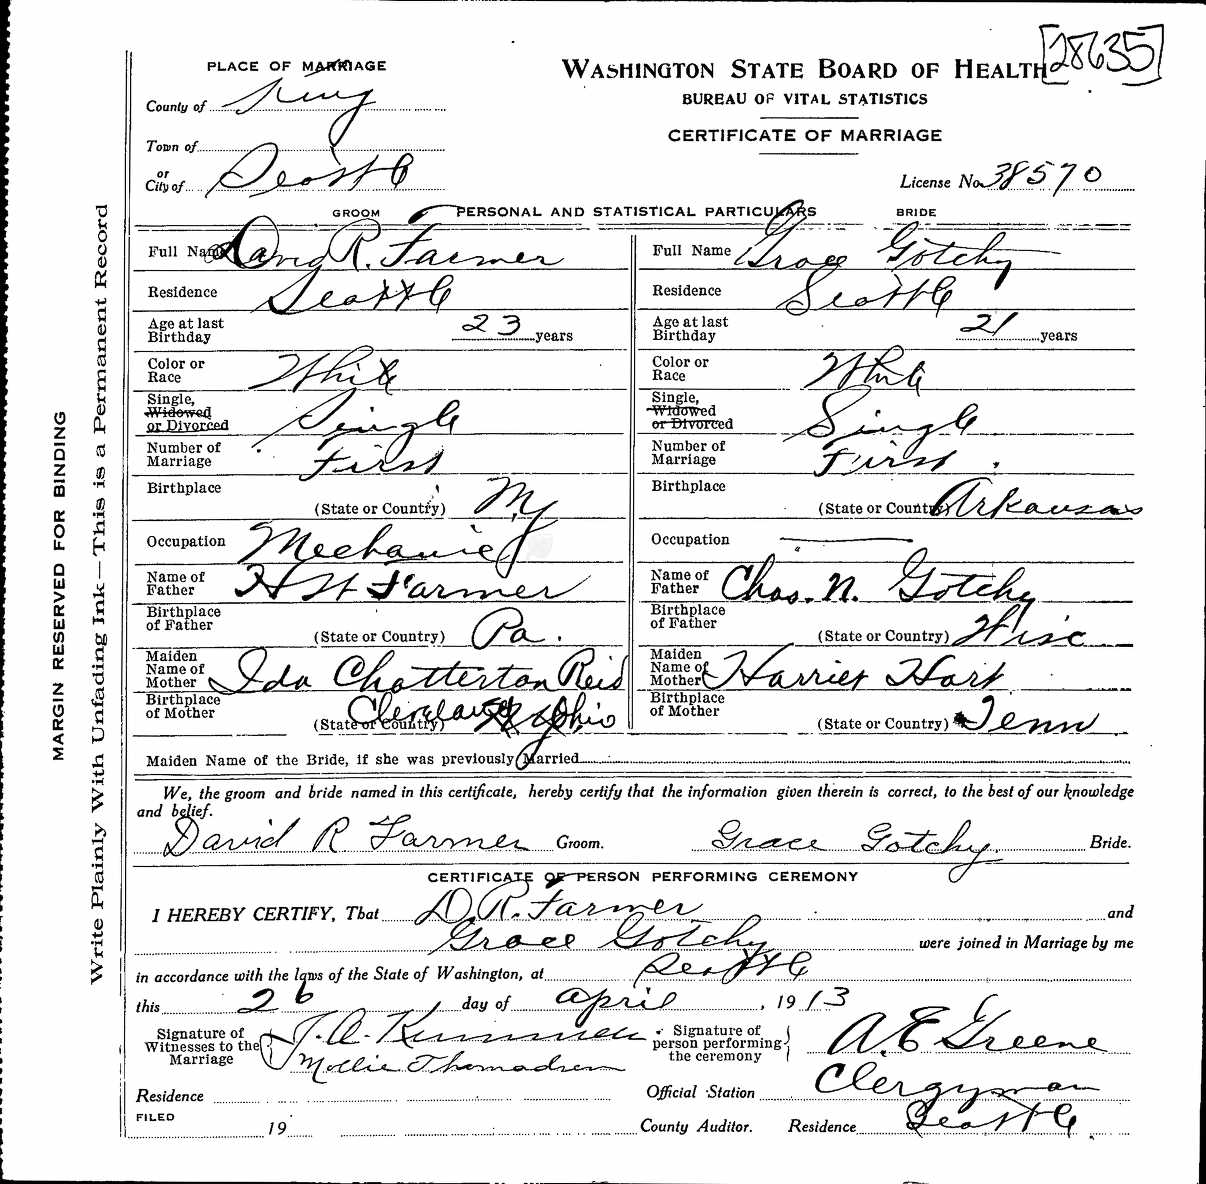 [28635]
PLACE OF MARRIAGE
WASHINGTON STATE BOARD OF HEALTH
BUREAU OF VITAL STATISTICS
CERTIFICATE OF MARRIAGE
County of King
Town of
or
City of Seattle
License No. 38570
GROOM PERSONAL AND STATISTICAL PARTICULARS BRIDE
Full Name David R. Farmer
Full Name Grace Gotchy
Residence Seattle
Residence Seattle
Age at last Birthday 23 years
Age at last Birthday 21 years
Color or Race White
Color or Race White
Single, Widowed or Divorced Single
Single, Widowed or Divorced Single
Number of Marriage First
Number of Marriage First
Birthplace (State or Country)
Birthplace (State or Country) Arkansas
Occupation Mechanic
Occupation —
Name of Father H W Farmer
Name of Father Chas. N. Gotchy
Birthplace of Father (State or Country) Pa.
Birthplace of Father (State or Country) Wisc
Maiden Name of Mother Ida Chatterton Reid
Maiden Name of Mother Harriet Hart
Birthplace of Mother (State or Country) Cleveland Ohio
Birthplace of Mother (State or Country) Tenn
Maiden Name of the Bride, if she was previously Married
We, the groom and bride named in this certificate, hereby certify that the information given therein is correct, to the best of our knowledge
and belief.
David R Farmer Groom. Grace Gotchy. Bride.
CERTIFICATE OF PERSON PERFORMING CEREMONY
I HEREBY CERTIFY, That D. R. Farmer and
Grace Gotchy were joined in Marriage by me
in accordance with the laws of the State of Washington, at Seattle
this 26 day of April, 1913
Signature of Witnesses to the Marriage J. A.
Mollie
Signature of person performing the ceremony A. E Greene
Residence
Official Station Clergyman
FILED
19
County Auditor. Residence Seattle.
MARGIN RESERVED FOR BINDING
Write Plainly With Unfading Ink—This is a Permanent Record